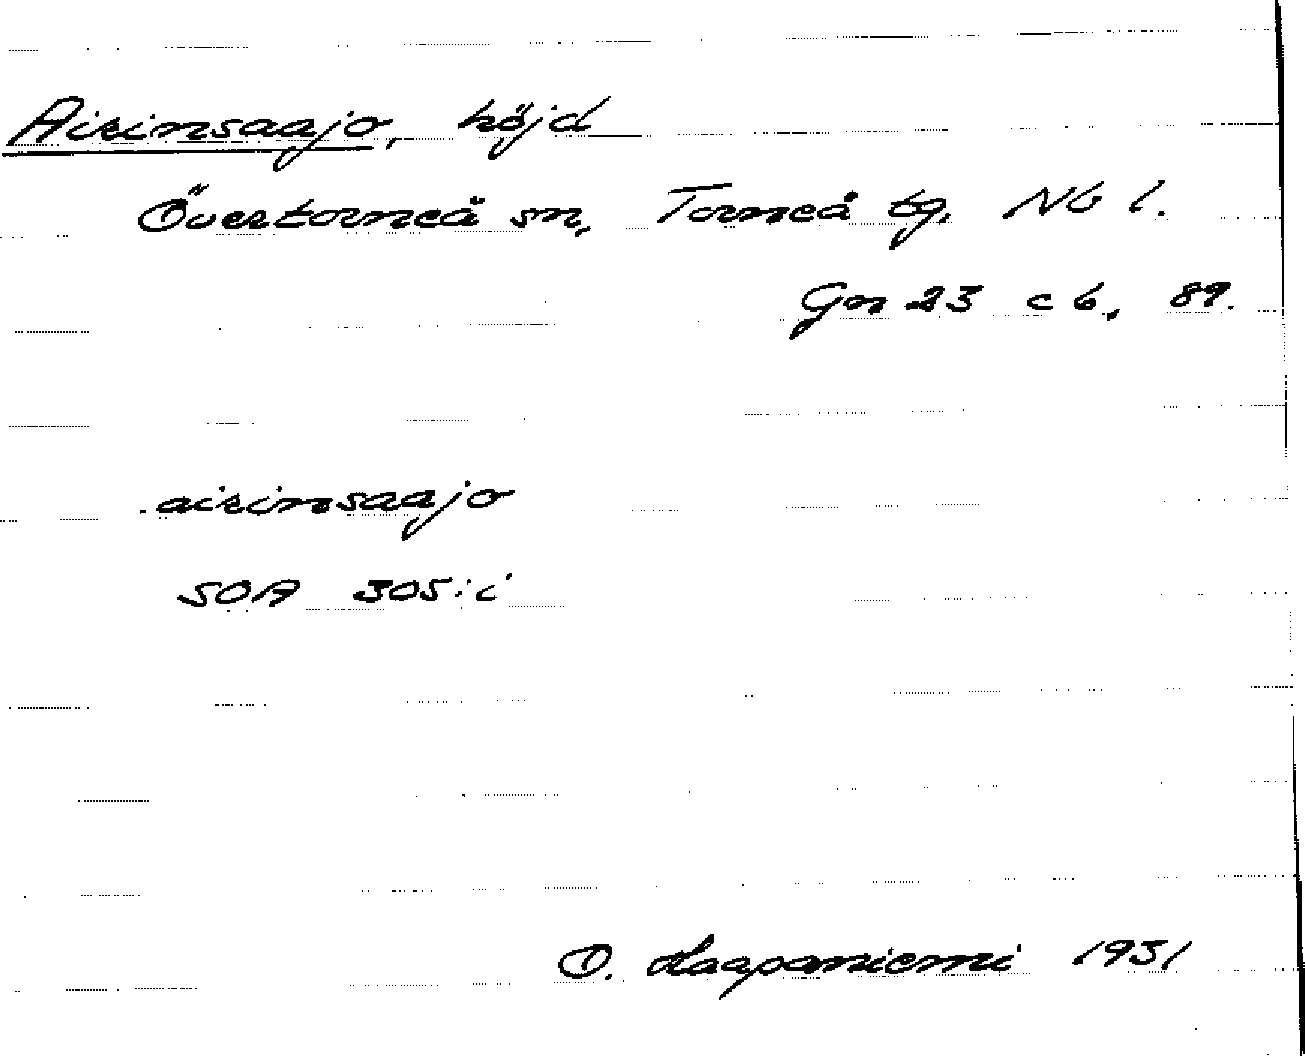 Airinsaajo, höjd
Övertorneå sn, Torneå tg. Nb l.
Gn 23 c 6, 89.
airinsaajo
SOA 305:i
O. Haapaniemi 1931